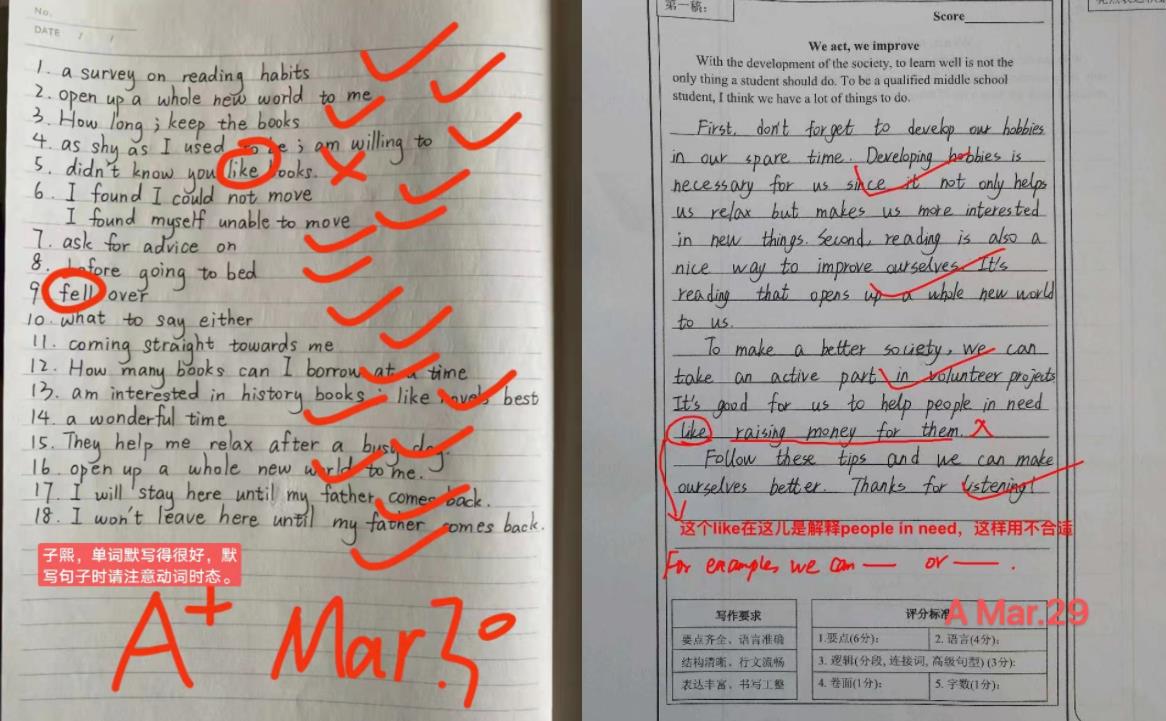 No.
DATE / /
1. a survey on reading habits
2. open up a whole new world to me
3. How long ; keep the books
4. as shy as I used to be ; am willing to
5. didn't know you like books.
6. I found I could not move
I found myself unable to move
7. ask for advice on
8. before going to bed
9 fell over
10. what to say either
11. coming straight towards me
12. How many books can I borrow at a time
13. am interested in history books ; like novels best
14. a wonderful time
15. They help me relax after a busy day.
16. open up a whole new world to me.
17. I will stay here until my father comes back.
18. I won't leave here until my father comes back.
子熙，单词默写得很好，默
写句子时请注意动词时态。
A+ Mar.30
第一稿：
Score
We act, we improve
With the development of the society, to learn well is not the
only thing a student should do. To be a qualified middle school
student, I think we have a lot of things to do.
First, don't forget to develop our hobbies
in our spare time. Developing hobbies is
necessary for us since it not only helps
us relax but makes us more interested
in new things. Second, reading is also a
nice way to improve ourselves. It's
reading that opens up a whole new world
to us.
To make a better society, we can
take an active part in volunteer projects.
It's good for us to help people in need
like raising money for them.
Follow these tips and we can make
ourselves better. Thanks for listening!
这个like在这儿是解释people in need，这样用不合适
For examples, we can — or — .
A Mar.29
写作要求
要点齐全、语言准确
结构清晰、行文流畅
表达丰富、书写工整
评分标准
1.要点(6分)： 2. 语言(4分)：
3. 逻辑(分段, 连接词, 高级句型) (3分)：
4. 卷面(1分)： 5. 字数(1分)：